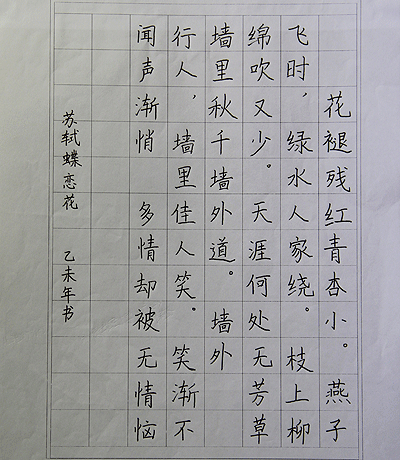 花褪残红青杏小。燕子
飞时，绿水人家绕。枝上柳
绵吹又少。天涯何处无芳草
墙里秋千墙外道。墙外
行人，墙里佳人笑。笑渐不
闻声渐悄 多情却被无情恼
苏轼蝶恋花 乙未年书